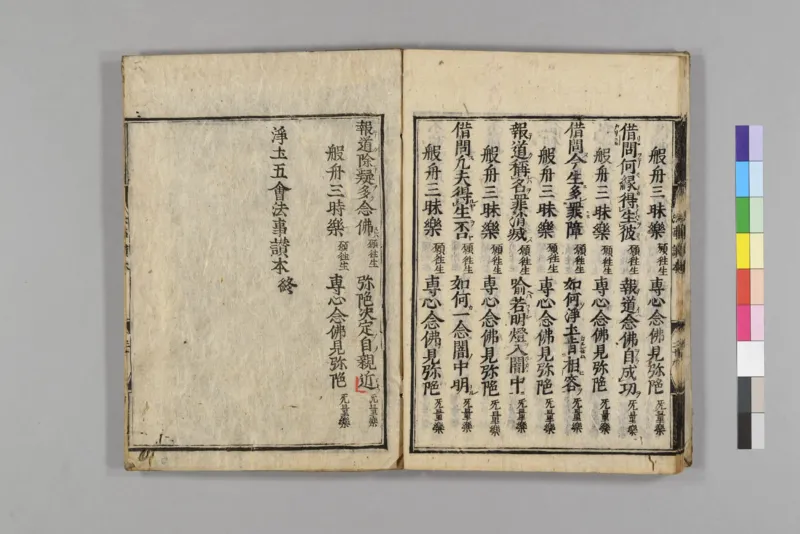 般舟三昧樂 願往生 専心念佛見弥陁 无量樂
借問何縁得生彼 報道念佛自成功
般舟三昧樂 願往生 専心念佛見弥陁 无量樂
借問今生多罪障 如何淨土肯相容
般舟三昧樂 願往生 専心念佛見弥陁 无量樂
報道稱名罪消滅 願往生 喻若明燈入闇中 无量樂
般舟三昧樂 願往生 専心念佛見弥陁 无量樂
借問凡夫得生否 願往生 如何一念闇中明 无量樂
般舟三昧樂 願往生 専心念佛見弥陁 无量樂
報道除疑多念佛 願往生 弥陁决定自親近 无量樂
般舟三時樂 願往生 専心念佛見弥陁 无量樂
淨土五會法事讃本 終